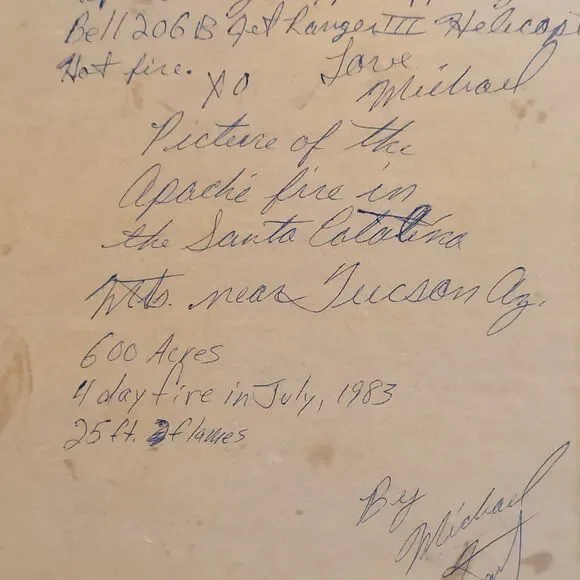 Bell 206 B Jet Ranger III
Hot fire.
XO
Love
Michael
Picture of the
Apache fire in
the Santa Catalina
Mts. near Tucson Az.
600 Acres
4 day fire in July, 1983
25 ft. flames
By
Michael